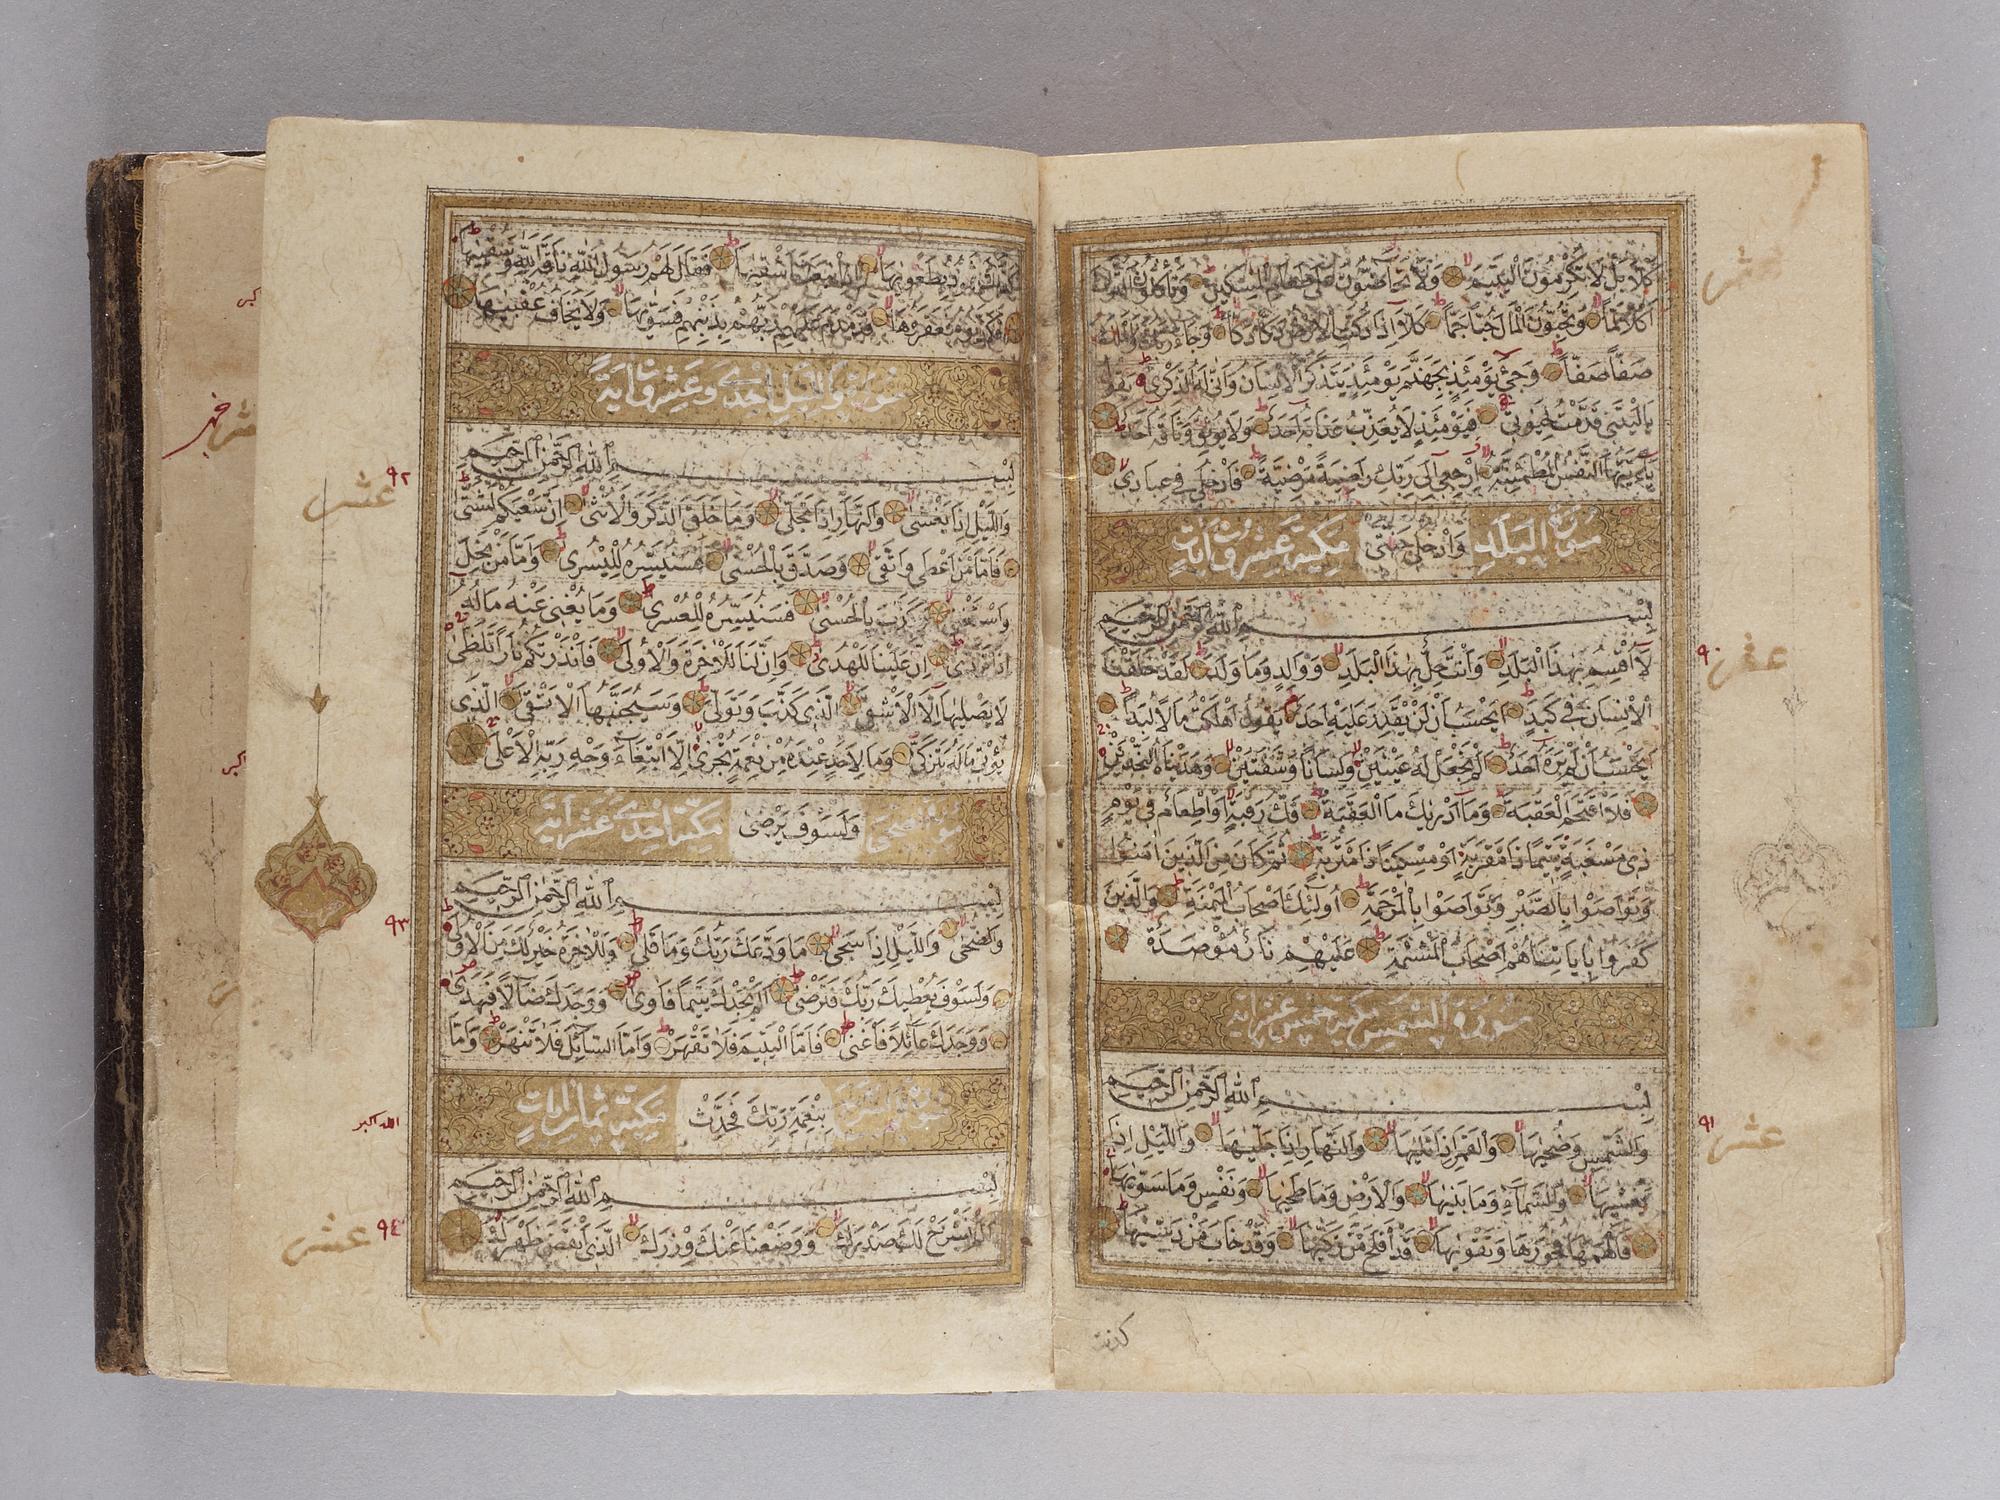 كَلَّا بَل لَا تُكْرِمُونَ الْيَتِيمَ وَلَا تَحَاضُّونَ عَلَى طَعَامِ الْمِسْكِينِ وَتَأْكُلُونَ التُّرَاثَ
أَكْلًا لَمًّا وَتُحِبُّونَ الْمَالَ حُبًّا جَمًّا كَلَّا إِذَا دُكَّتِ الْأَرْضُ دَكًّا دَكًّا وَجَاءَ رَبُّكَ وَالْمَلَكُ
صَفًّا صَفًّا وَجِيءَ يَوْمَئِذٍ بِجَهَنَّمَ يَوْمَئِذٍ يَتَذَكَّرُ الْإِنْسَانُ وَأَنَّى لَهُ الذِّكْرَى يَقُولُ
يَا لَيْتَنِي قَدَّمْتُ لِحَيَوتِي فَيَوْمَئِذٍ لَا يُعَذِّبُ عَذَابَهُ أَحَدٌ وَلَا يُوثِقُ وَثَاقَهُ أَحَدٌ
يَا أَيَّتُهَا النَّفْسُ الْمُطْمَئِنَّةُ ارْجِعِي إِلَى رَبِّكِ رَاضِيَةً مَرْضِيَّةً فَادْخُلِي فِي عِبَادِي
سُورَةُ الْبَلَدِ وَادْخُلِي جَنَّتِي مَكِّيَّةٌ عِشْرُونَ آيَاتٍ
بِسْمِ اللَّهِ الرَّحْمَنِ الرَّحِيمِ
لَا أُقْسِمُ بِهَذَا الْبَلَدِ وَأَنْتَ حِلٌّ بِهَذَا الْبَلَدِ وَوَالِدٍ وَمَا وَلَدَ لَقَدْ خَلَقْنَا
٩٠ عشر
الْإِنْسَانَ فِي كَبَدٍ أَيَحْسَبُ أَنْ لَنْ يَقْدِرَ عَلَيْهِ أَحَدٌ يَقُولُ أَهْلَكْتُ مَالًا لُبَدًا
أَيَحْسَبُ أَنْ لَمْ يَرَهُ أَحَدٌ أَلَمْ نَجْعَلْ لَهُ عَيْنَيْنِ وَلِسَانًا وَشَفَتَيْنِ وَهَدَيْنَاهُ النَّجْدَيْنِ
فَلَا اقْتَحَمَ الْعَقَبَةَ وَمَا أَدْرَيكَ مَا الْعَقَبَةُ فَكُّ رَقَبَةٍ أَوْ إِطْعَامٌ فِي يَوْمٍ
ذِي مَسْغَبَةٍ يَتِيمًا ذَا مَقْرَبَةٍ أَوْ مِسْكِينًا ذَا مَتْرَبَةٍ ثُمَّ كَانَ مِنَ الَّذِينَ آمَنُوا
وَتَوَاصَوْا بِالصَّبْرِ وَتَوَاصَوْا بِالْمَرْحَمَةِ أُولَئِكَ أَصْحَابُ الْمَيْمَنَةِ وَالَّذِينَ
كَفَرُوا بِآيَاتِنَا هُمْ أَصْحَابُ الْمَشْئَمَةِ عَلَيْهِمْ نَارٌ مُوصَدَةٌ
سُورَةُ الشَّمْسِ مَكِّيَّةٌ خَمْسَ عَشَرَ آيَةً
بِسْمِ اللَّهِ الرَّحْمَنِ الرَّحِيمِ
وَالشَّمْسِ وَضُحَيهَا وَالْقَمَرِ إِذَا تَلَيهَا وَالنَّهَارِ إِذَا جَلَّيهَا وَاللَّيْلِ إِذَا
٩١ عشر
يَغْشَيهَا وَالسَّمَاءِ وَمَا بَنَيهَا وَالْأَرْضِ وَمَا طَحَيهَا وَنَفْسٍ وَمَا سَوَّيهَا
فَأَلْهَمَهَا فُجُورَهَا وَتَقْوَيهَا قَدْ أَفْلَحَ مَنْ زَكَّيهَا وَقَدْ خَابَ مَنْ دَسَّيهَا
كذبت
كَذَّبَتْ ثَمُودُ بِطَغْوَيهَا إِذِ انْبَعَثَ أَشْقَيهَا فَقَالَ لَهُمْ رَسُولُ اللَّهِ نَاقَةَ اللَّهِ وَسُقْيَيهَا
فَكَذَّبُوهُ فَعَقَرُوهَا فَدَمْدَمَ عَلَيْهِمْ رَبُّهُمْ بِذَنْبِهِمْ فَسَوَّيهَا وَلَا يَخَافُ عُقْبَيهَا
سُورَةُ وَاللَّيْلِ إِحْدَى وَعِشْرُونَ آيَةً
بِسْمِ اللَّهِ الرَّحْمَنِ الرَّحِيمِ
٩٢ عشر
وَاللَّيْلِ إِذَا يَغْشَى وَالنَّهَارِ إِذَا تَجَلَّى وَمَا خَلَقَ الذَّكَرَ وَالْأُنْثَى إِنَّ سَعْيَكُمْ لَشَتَّى
فَأَمَّا مَنْ أَعْطَى وَاتَّقَى وَصَدَّقَ بِالْحُسْنَى فَسَنُيَسِّرُهُ لِلْيُسْرَى وَأَمَّا مَنْ بَخِلَ
وَاسْتَغْنَى وَكَذَّبَ بِالْحُسْنَى فَسَنُيَسِّرُهُ لِلْعُسْرَى وَمَا يُغْنِي عَنْهُ مَالُهُ
إِذَا تَرَدَّى إِنَّ عَلَيْنَا لَلْهُدَى وَإِنَّ لَنَا لَلْآخِرَةَ وَالْأُولَى فَأَنْذَرْتُكُمْ نَارًا تَلَظَّى
لَا يَصْلَيهَا إِلَّا الْأَشْقَى الَّذِي كَذَّبَ وَتَوَلَّى وَسَيُجَنَّبُهَا الْأَتْقَى الَّذِي
يُؤْتِي مَالَهُ يَتَزَكَّى وَمَا لِأَحَدٍ عِنْدَهُ مِنْ نِعْمَةٍ تُجْزَى إِلَّا ابْتِغَاءَ وَجْهِ رَبِّهِ الْأَعْلَى
سُورَةُ الضُّحَى وَلَسَوْفَ يَرْضَى مَكِّيَّةٌ إِحْدَى عَشَرَ آيَةً
بِسْمِ اللَّهِ الرَّحْمَنِ الرَّحِيمِ
٩٣
وَالضُّحَى وَاللَّيْلِ إِذَا سَجَى مَا وَدَّعَكَ رَبُّكَ وَمَا قَلَى وَلَلْآخِرَةُ خَيْرٌ لَكَ مِنَ الْأُولَى
وَلَسَوْفَ يُعْطِيكَ رَبُّكَ فَتَرْضَى أَلَمْ يَجِدْكَ يَتِيمًا فَآوَى وَوَجَدَكَ ضَالًّا فَهَدَى
وَوَجَدَكَ عَائِلًا فَأَغْنَى فَأَمَّا الْيَتِيمَ فَلَا تَقْهَرْ وَأَمَّا السَّائِلَ فَلَا تَنْهَرْ وَأَمَّا
بِنِعْمَةِ رَبِّكَ فَحَدِّثْ مَكِّيَّةٌ ثَمَانُ آيَاتٍ
الله اكبر
بِسْمِ اللَّهِ الرَّحْمَنِ الرَّحِيمِ
أَلَمْ نَشْرَحْ لَكَ صَدْرَكَ وَوَضَعْنَا عَنْكَ وِزْرَكَ الَّذِي أَنْقَضَ ظَهْرَكَ
٩٤ عشر